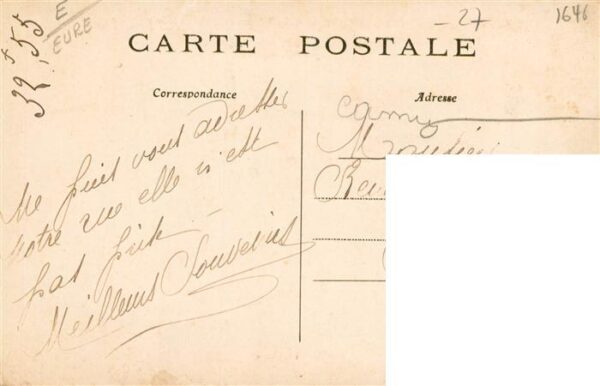 32,55
E
EURE
-27
1646
CARTE POSTALE
Correspondance
Adresse
Ne puis vous adresser
votre rue elle n'est
pas prête
Meilleurs Souvenirs
Monsieur